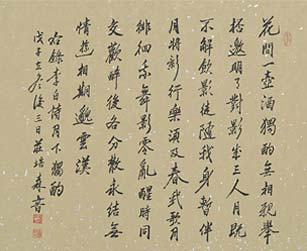 花間一壺酒獨酌無相親舉
杯邀明月對影成三人月既
不解飲影徒隨我身暫伴
月將影行樂須及春我歌月
徘徊我舞影零亂醒時同
交歡醉後各分散永結無
情遊相期邈雲漢
右錄李白詩月下獨酌
戊子立冬後三日莊培森書